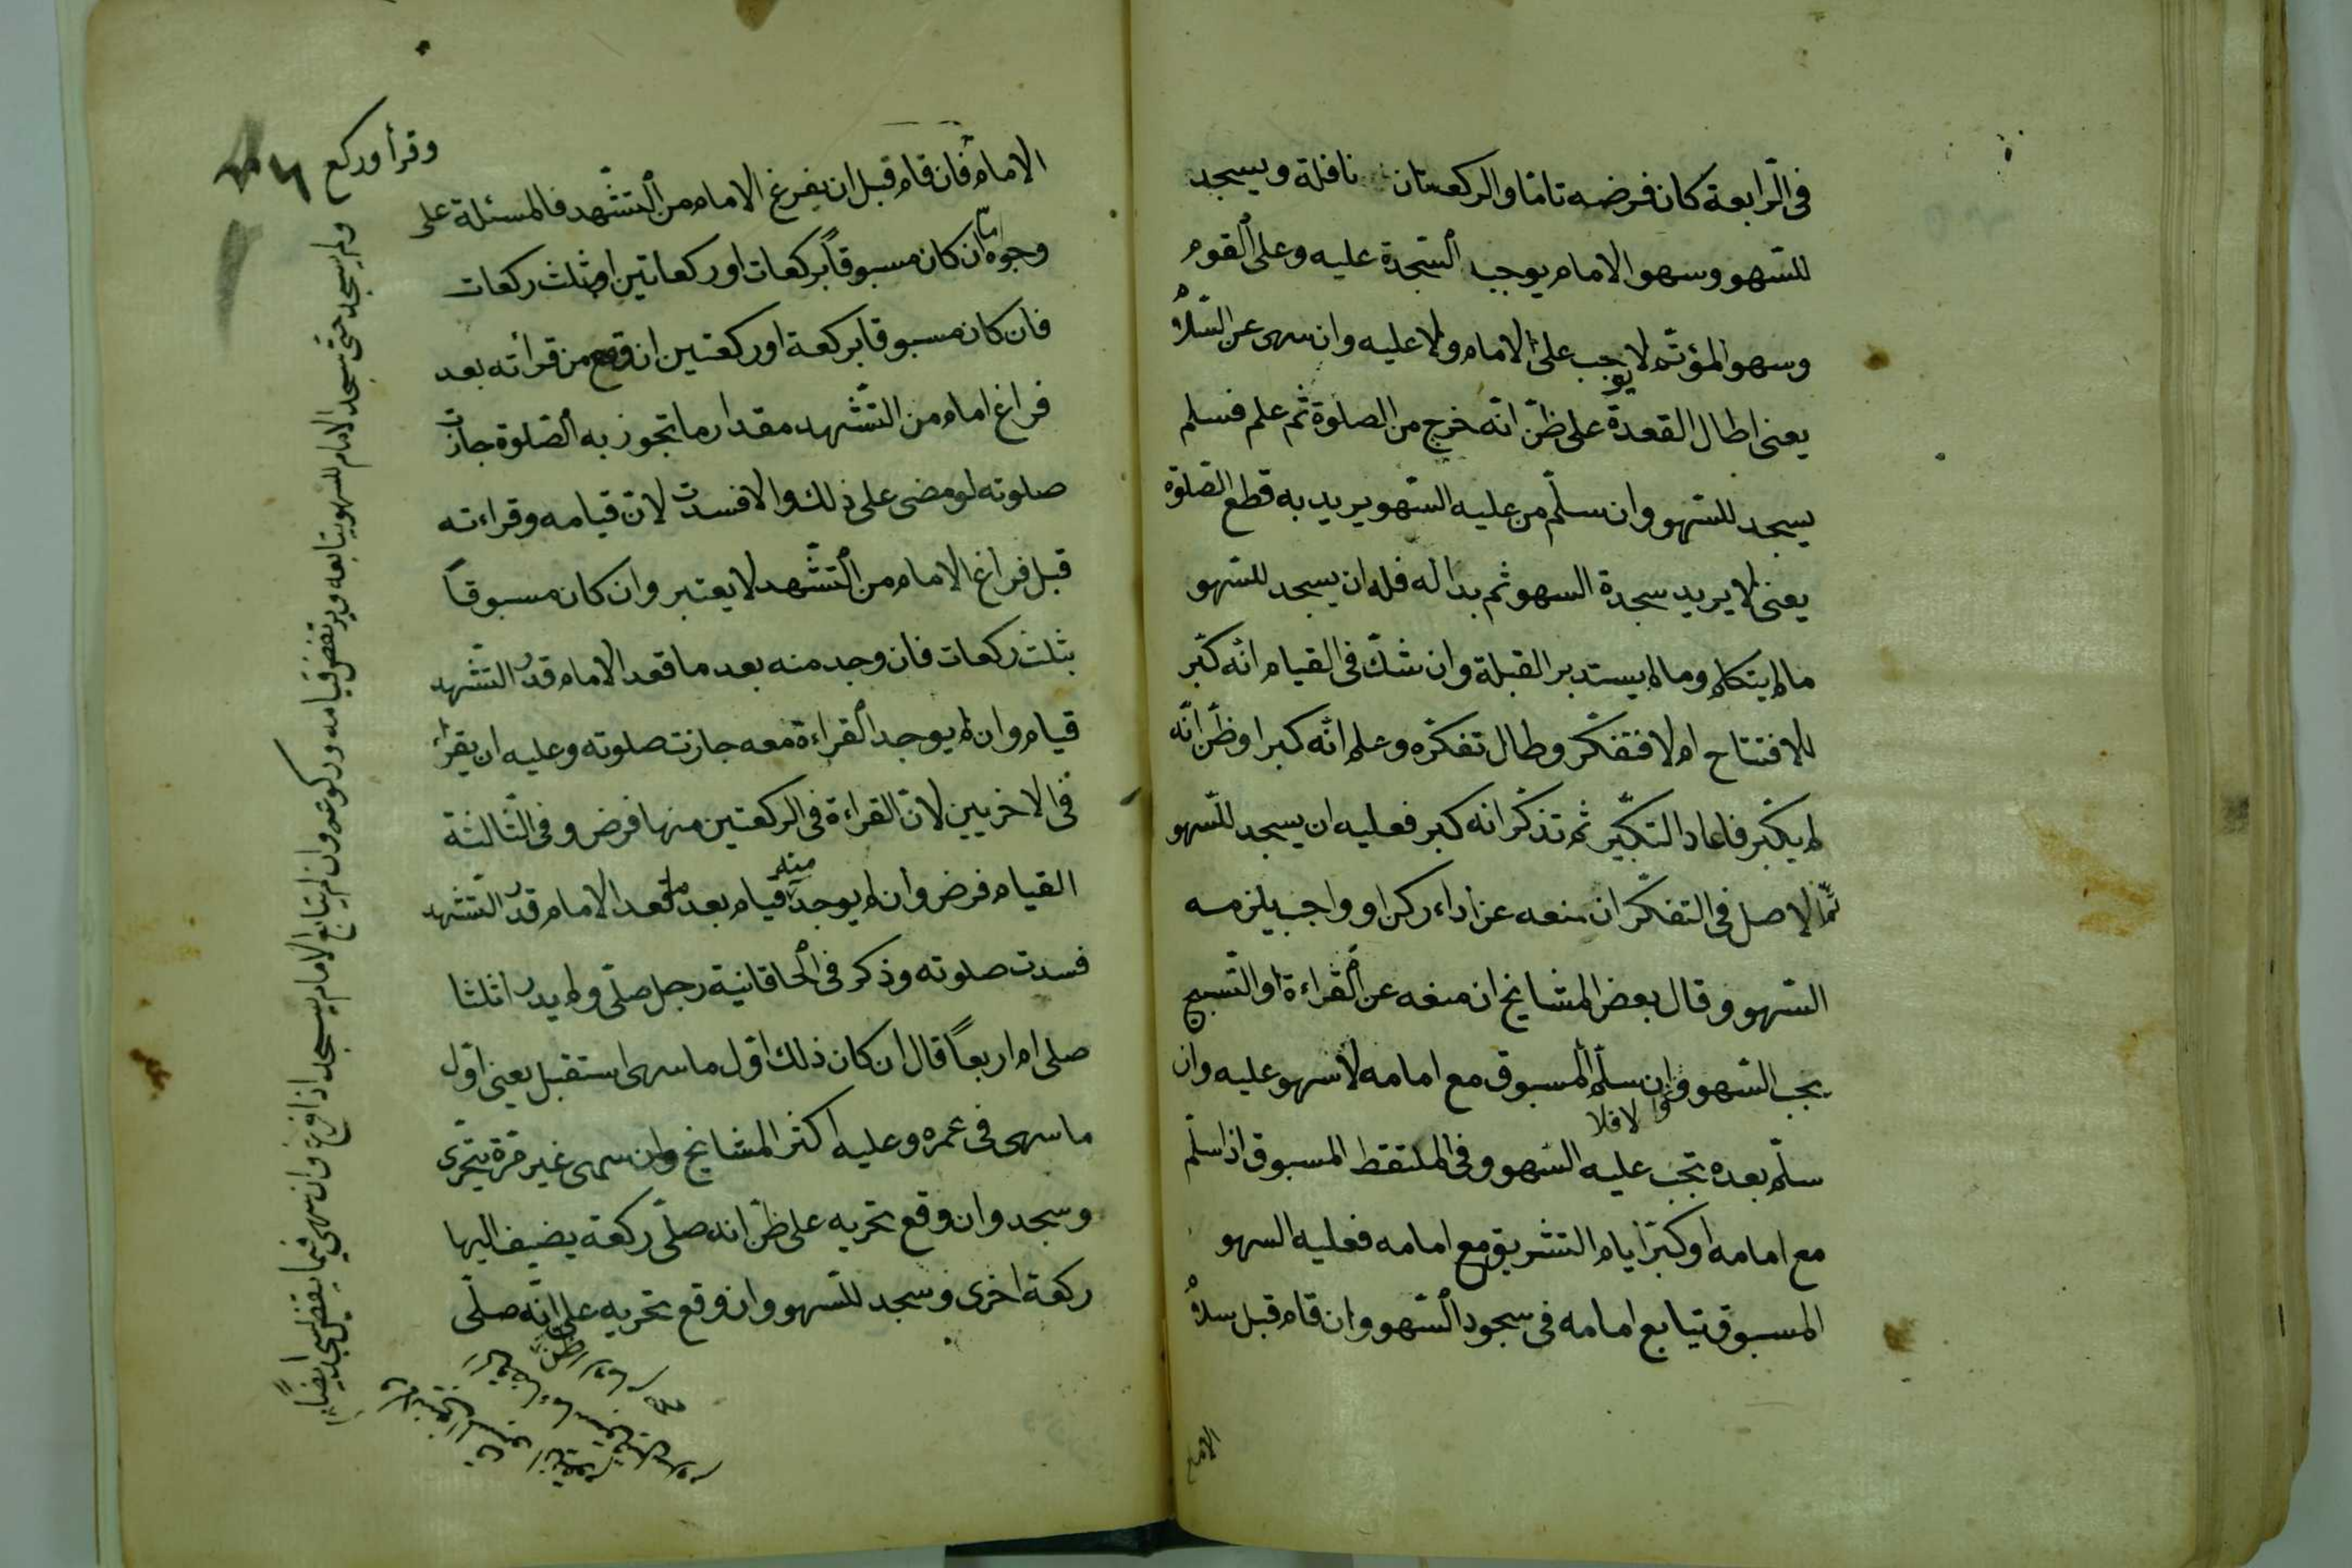 فى الرّابعة كان فرضه تامّا والركعتان نافلة ويسجد
للسّهو وسهو الامام يوجب السّجدة عليه وعلى القوم
وسهو المؤتمّ لا يوجب على الامام ولا عليه وان سهى عن السّلام
يعنى اطال القعدة على ظنّ انّه خرج من الصلوة ثم علم فسلم
يسجد للسّهو وان سلّم من عليه السّهو يريد به قطع الصّلوة
يعنى لا يريد سجدة السهو ثم بدا له فله ان يسجد للسّهو
ما لم يتكلم وما لم يستدبر القبلة وان شكّ فى القيام انّه كبّر
للافتتاح ام لا فتفكّر وطال تفكّره وعلم انّه كبر او ظنّ انّه
لم يكبّر فاعاد التكبير ثم تذكّر انه كبر فعليه ان يسجد للسّهو
ثمّ الاصل فى التفكّر ان منعه عن اداء ركن او واجب يلزمه
السّهو وقال بعض المشايخ ان منعه عن القراءة او التّسبيح
يجب السّهو والا فلا وان سلّم المسبوق مع امامه لا سهو عليه وان
سلّم بعده تجب عليه السّهو وفى الملتقط المسبوق اذا سلّم
مع امامه او كبّر ايام التشريق مع امامه فعليه السهو
المسبوق يتابع امامه فى سجود السّهو وان قام قبل سلام
وقرأ وركع
الامام فان قام قبل ان يفرغ الامام من التّشّهد فالمسئلة على
وجوه امّا ان كان مسبوقاً بركعات او ركعاتين او ثلث ركعات
فان كان مسبوقا بركعة او ركعتين ان وقع من قرائته بعد
فراغ امام من التّشّهد مقدار ما تجوز به الصّلوة جازت
صلوته لو مضى على ذلك والا فسدت لانّ قيامه وقراءته
قبل فراغ الامام من التّشّهد لا يعتبر وان كان مسبوقاً
بثلث ركعات فان وجد منه بعد ما قعد الامام قدر التّشّهد
قيام وان لم يوجد القراءة معه جازت صلوته وعليه ان يقرأ
فى الاخريين لانّ القراءة فى الركعتين منها فرض وفى الثّالثة
القيام فرض وان لم يوجد منه قيام بعد ما قعد الامام قدر التّشّهد
فسدت صلوته وذكر فى الخاقانية رجل صلّى ولم يدر اثلثا
صلى ام اربعاً قال ان كان ذلك اوّل ما سهى استقبل يعنى اوّل
ما سهى فى عمره وعليه اكثر المشايخ وان سهى غير مرّة يتحرّى
وسجد وان وقع تحريه على ظنّ انه صلّى ركعة يضيف اليها
ركعة اخرى وسجد للسّهو وان وقع تحريه على انّه صلّى
ولم يسجد حتى سجد الامام للسهو يتابعه ويرتفض قيامه وركوعه وان لم يتابع الامام يسجد اذا فرغ وان سهى فيما يقضى يسجد ايضاً